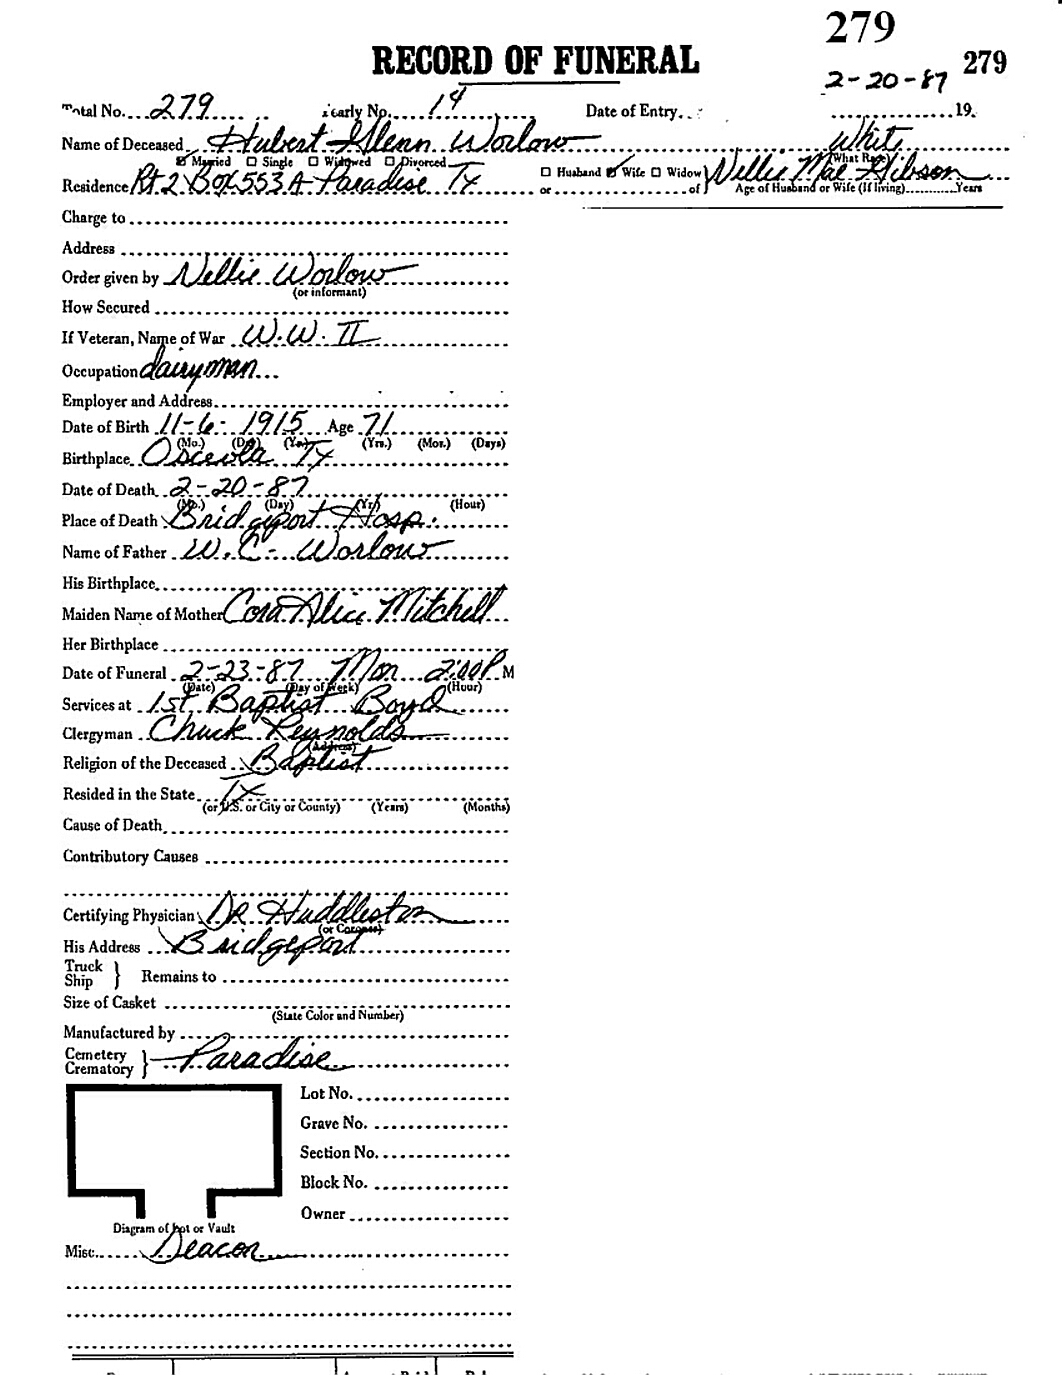 279
RECORD OF FUNERAL 279
2-20-87
Total No. 279 Yearly No. 14 Date of Entry 19
Name of Deceased Hubert Glenn Worlow White
(What Race)
Married Single Widowed Divorced
Husband Wife Widow Nellie Mae Gibson
Residence Rt 2 Box 553A Paradise Tx or of Age of Husband or Wife (If living) Years
Charge to
Address
Order given by Nellie Worlow
(or informant)
How Secured
If Veteran, Name of War W.W. II
Occupation dairyman
Employer and Address
Date of Birth 11-6-1915 Age 71
(Mo.) (Day) (Yr.) (Yrs.) (Mos.) (Days)
Birthplace Osceola Tx
Date of Death 2-20-87
(Mo.) (Day) (Yr.) (Hour)
Place of Death Bridgeport Hosp.
Name of Father W. C. Worlow
His Birthplace
Maiden Name of Mother Cora Alice Mitchell
Her Birthplace
Date of Funeral 2-23-87 Mon 2:00 P M
(Date) (Day of Week) (Hour)
Services at 1st Baptist Boyd
Clergyman Chuck Reynolds
(Address)
Religion of the Deceased Baptist
Resided in the State Tx
(or U.S. or City or County) (Years) (Months)
Cause of Death
Contributory Causes
Certifying Physician DR Huddleston
(or Coroner)
His Address Bridgeport
Truck
Ship } Remains to
Size of Casket
(State Color and Number)
Manufactured by
Cemetery
Crematory } Paradise
Lot No.
Grave No.
Section No.
Block No.
Owner
Diagram of Lot or Vault
Misc. Deacon